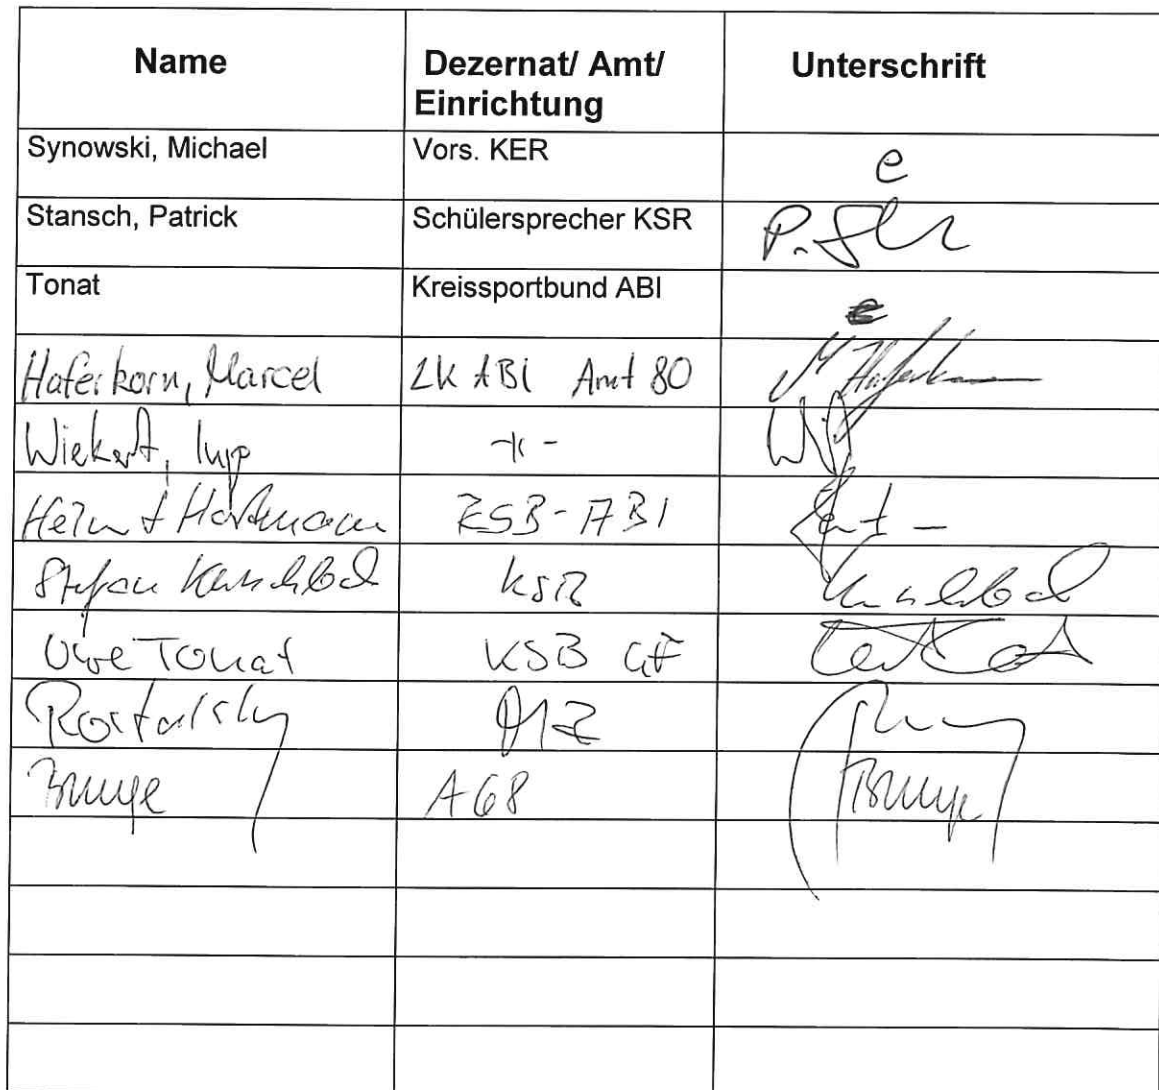 Name Dezernat/ Amt/ Unterschrift
Einrichtung
Synowski, Michael Vors. KER e
Stansch, Patrick Schülersprecher KSR P.
Tonat Kreissportbund ABI e
Haferkorn, Marcel LK ABI Amt 80 M Haferkorn
Wiekert, Ingo -"-
Helmut Hartmann KSB-ABI
Stefan KSR
Uwe Tonat KSB GF
Rostalsky
Bunge A68 Bunge